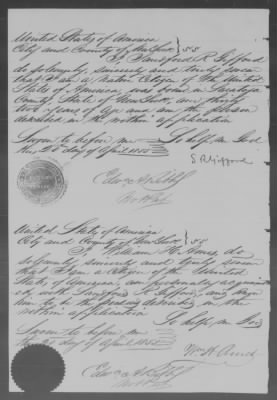 United States of America
City and County of New York } SS
I, Sandford R. Gifford
do solemnly, sincerely and truly swear
that I am a native Citizen of the United
States of America, was born in Saratoga
County State of New York, am thirty
two years of age and am the person
described in the within application
Sworn to before me So help me God
this 28 day of April 1855
S R Gifford
United States of America
City and County of New York } SS
I William H. do
solemnly sincerely and truly swear
that I am a Citizen of the United
States of America, am personally acquainted
with Sandford R Gifford, and know
him to be the person described in the
within application
So help me God
Sworn to before me
this 28 day of April 1855
Wm H.